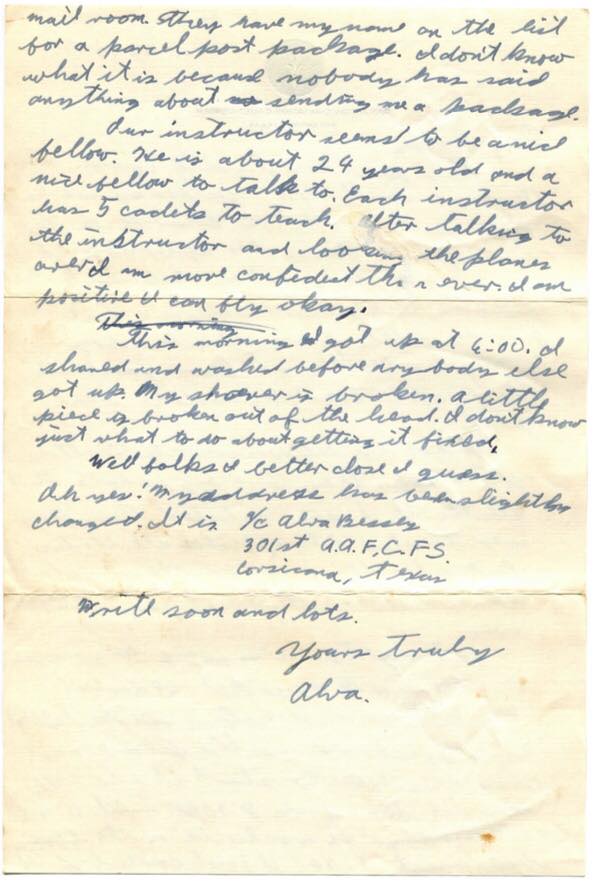 mail room. They have my name on the list
for a parcel post package. I don't know
what it is because nobody has said
anything about sending me a package.
Our instructor seems to be a nice
fellow. He is about 24 years old and a
nice fellow to talk to. Each instructor
has 5 cadets to teach. After talking to
the instructor and looking the planes
over I am more confident than ever. I am
positive I can fly okay.
This morning
This morning I got up at 6:00. I
shaved and washed before any body else
got up. My shaver is broken. A little
piece is broken out of the head. I don't know
just what to do about getting it fixed.
Well folks I better close I guess.
Oh yes! My address has been slightly
changed. It is A/c Alva Bessey
301st A.A.F.C.FS.
Corsicana, Texas
Write soon and lots.
Yours Truly
Alva.